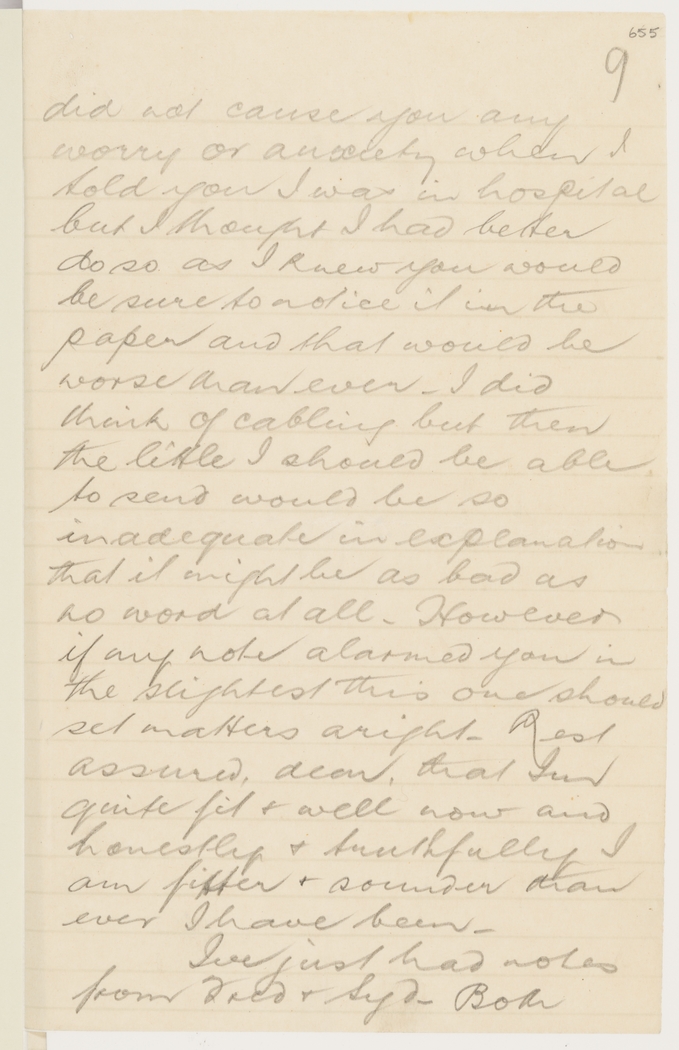 655
9
did not cause you any
worry or anxiety when I
told you I was in hospital
but I thought I had better
do so as I knew you would
be sure to notice it in the
paper and that would be
worse than ever - I did
think of cabling but then
the little I should be able
to send would be so
inadequate in explanation
that it might be as bad as
no word at all - However
if my note alarmed you in
the slightest this one should
set matters aright - Rest
assured, dear, that I'm
quite fit & well now and
honestly & truthfully I
am fitter & sounder than
ever I have been -
I've just had notes
from Fred & Syd - Both